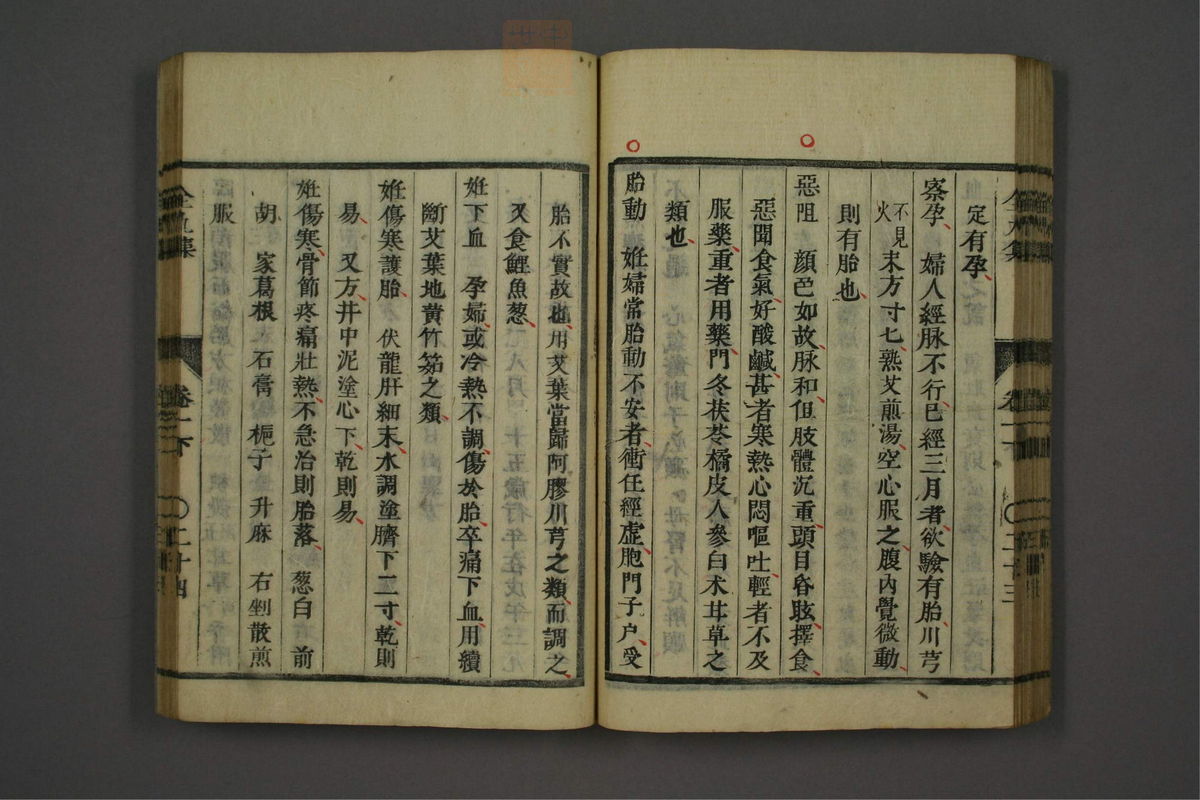 定有孕
察孕 婦人經脉不行已經三月者欲驗有胎川芎
不見火 末方寸匕熟艾煎湯空心服之腹内覺微動
則有胎也
惡阻 顔色如故脉和但肢體沉重頭目昏眩擇食
惡聞食氣好酸鹹甚者寒熱心悶嘔吐輕者不及
服藥重者用藥門冬茯苓橘皮人參白术甘草之
類也
胎動 姙婦常胎動不安者衝任經虛胞門子户受
胎不實故也用艾葉當歸阿膠川芎之類而調之
又食鯉魚葱
姙下血 孕婦或冷熱不調傷於胎卒痛下血用續
斷艾葉地黄竹筎之類
姙傷寒護胎 伏龍肝細末水調塗臍下二寸乾則
易又方井中泥塗心下乾則易
姙傷寒骨節疼痛壯熱不急治則胎落 葱白 前
胡 家葛根 石膏 梔子 升麻 右剉散煎
服
全九集 卷二下 二十三
全九集 卷二下 二十四